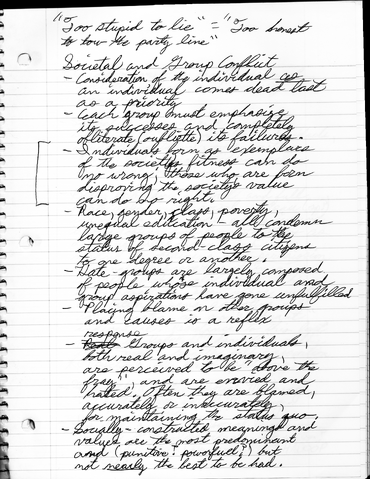 "Too stupid to lie" = "Too honest
to tow the party line"
Societal and Group Conflict
- Consideration of the individual as
an individual comes dead last
as a priority
- Each group must emphasize
its successes and completely
obliterate (outflite) its failures.
- Individuals form as exemplars
of the societies fitness can do
no wrong, those who are
disproving the society's value
can do no right.
- Race, gender, class, poverty,
unequal education - all condemn
large groups of people to the
status of second-class citizens
to one degree or another.
- Hate-groups are largely composed
of people whose individual and
group aspirations have gone unfulfilled
- Placing blame on other groups
and causes is a reflex
response
- Groups and individuals,
both real and imaginary,
are perceived to be "above the
fray", and are envied and
hated. Often they are blamed,
accurately or inaccurately,
for maintaining the status quo.
- Socially-constructed meanings and
values are the most predominant
and (punitive? powerful?) but
not nearly the best to be had.